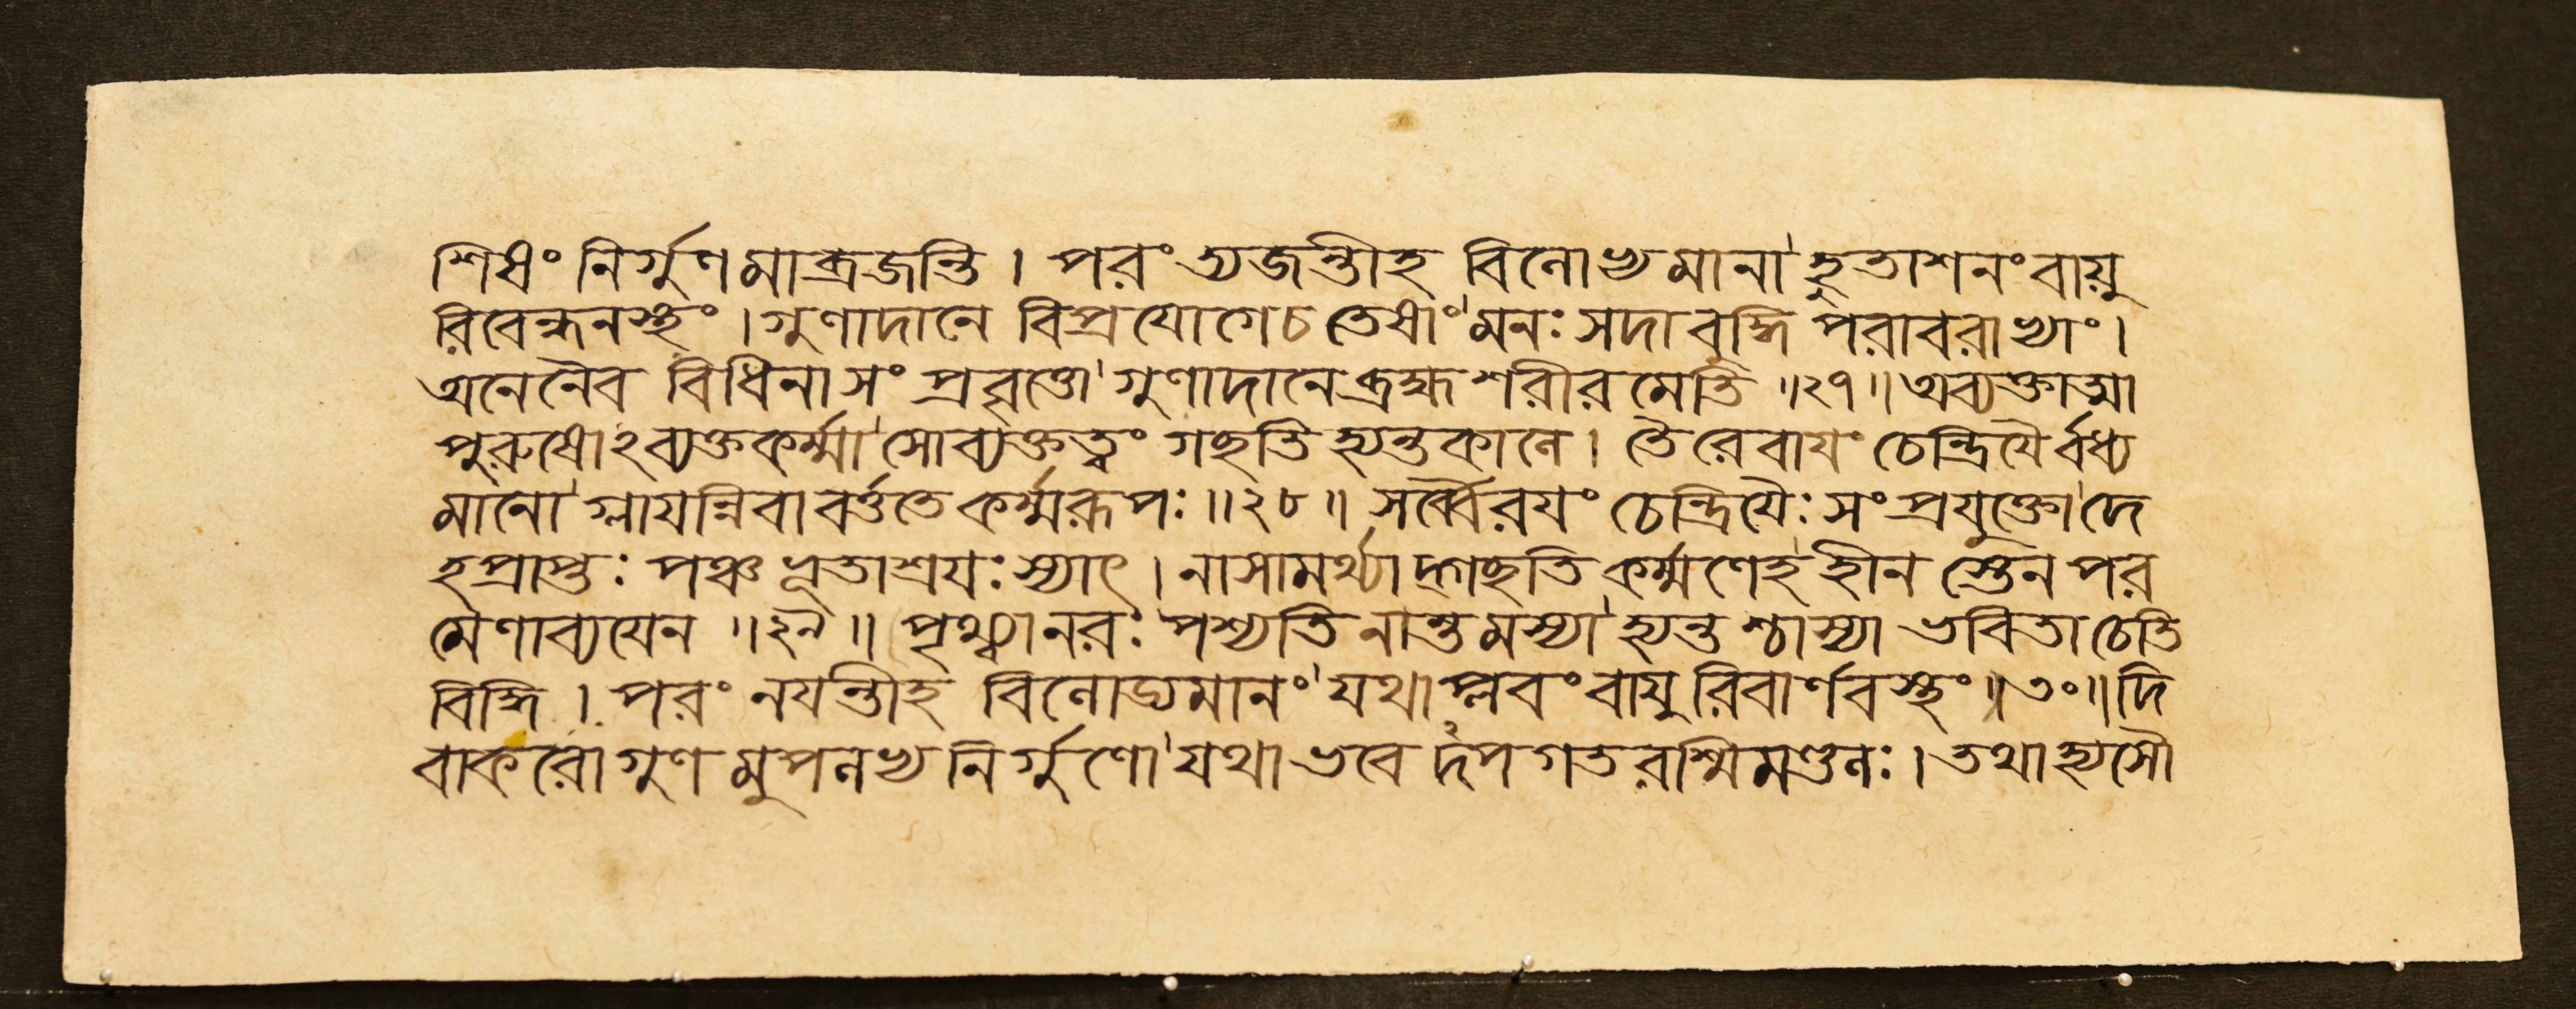 শিষং নির্গুণমাব্রজন্তি । পরং ত্যজন্তীহ বিলোভ্যমানা হুতাশনং বায়ু
রিবেন্ধনস্থং । গুণাদানে বিপ্রযোগেচ তেষাং মনঃ সদা বুদ্ধি পরাবরাখ্যাং ।
অনেনৈব বিধিনা সংপ্রবৃত্তো গুণাদানে ব্রহ্মশরীরমেতি ॥২৭॥ অব্যক্তাত্মা
পুরুষোঽব্যক্তকর্ম্মা সোব্যক্তত্বং গছতি হ্যন্তকালে । তৈরেবাযং চেন্দ্রিযৈর্বধ্য
মানো গ্লাযন্নিবাবর্ত্ততে কর্ম্মরূপঃ ॥২৮॥ সর্ব্বৈরযং চেন্দ্রিযৈঃ সংপ্রযুক্তো দে
হপ্রাপ্তঃ পঞ্চভূতাশ্রযঃ স্যাৎ । নাসামর্থ্যাদ্গছতি কর্ম্মণেহ হীন স্তেন পর
মেণাব্যযেন ॥২৯॥ পৃথ্ব্যা নরঃ পশ্যতি নান্তমস্যা হ্যন্তশ্চাস্যা ভবিতা চেতি
বিদ্ধি । পরং নযন্তীহ বিলোড্যমানং যথা প্লবং বাযুরিবার্ণবস্থং ॥৩০॥ দি
বাকরো গুণমুপলভ্য নির্গুণো যথা ভবেদপগতরশ্মিমণ্ডলঃ । তথা হ্যসৌ